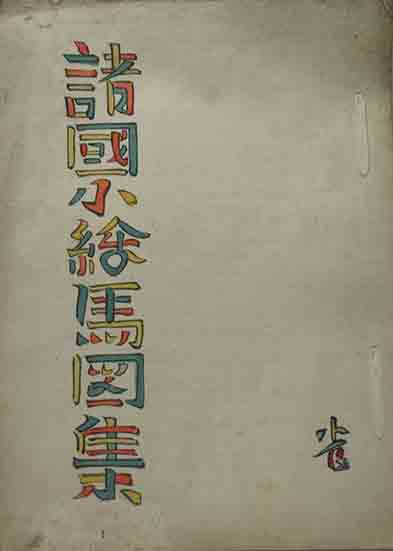 諸國小絵馬図集